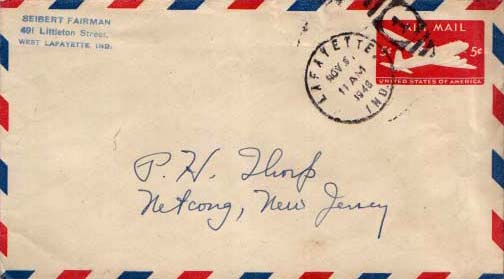 SEIBERT FAIRMAN
491 Littleton Street,
WEST LAFAYETTE, IND.
LAFAYETTE, IND.
NOV 5
11 AM
1946
AIR MAIL
5¢ 5¢
UNITED STATES OF AMERICA
P. H. Thorp
Netcong, New Jersey